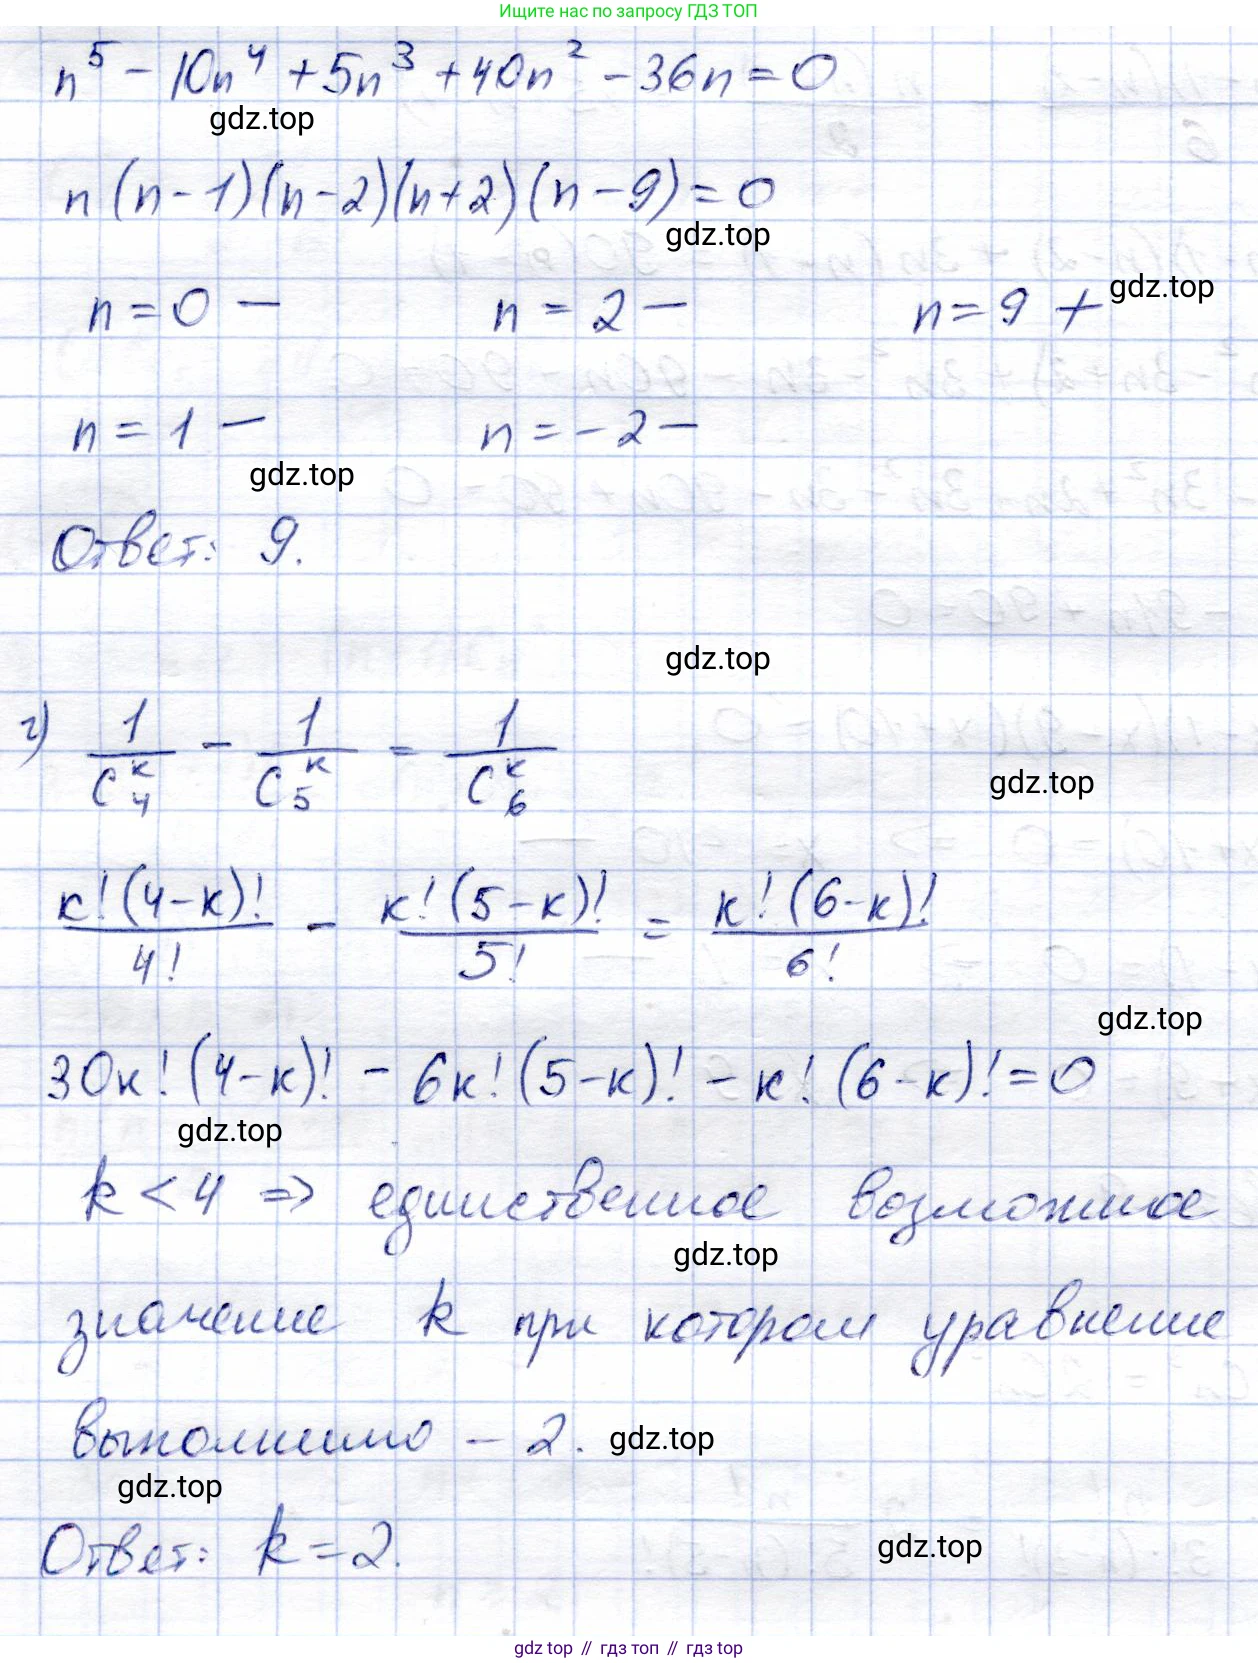 Ищите нас по запросу ГДЗ ТОП
n⁵ - 10n⁴ + 5n³ + 40n² - 36n = 0
gdz.top
n(n-1)(n-2)(n+2)(n-9) = 0
gdz.top
n = 0 — n = 2 — n = 9 +
gdz.top
n = 1 — n = -2 —
gdz.top
Ответ: 9.
gdz.top
г) 1/C₄ᵏ - 1/C₅ᵏ = 1/C₆ᵏ
gdz.top
к!(4-к)!/4! - к!(5-к)!/5! = к!(6-к)!/6!
gdz.top
30к!(4-к)! - 6к!(5-к)! - к!(6-к)! = 0
gdz.top
k < 4 => единственное возможное
gdz.top
значение k при котором уравнение
выполнимо - 2.
gdz.top
gdz.top
Ответ: k = 2.
gdz.top
gdz top // гдз топ // gdz top